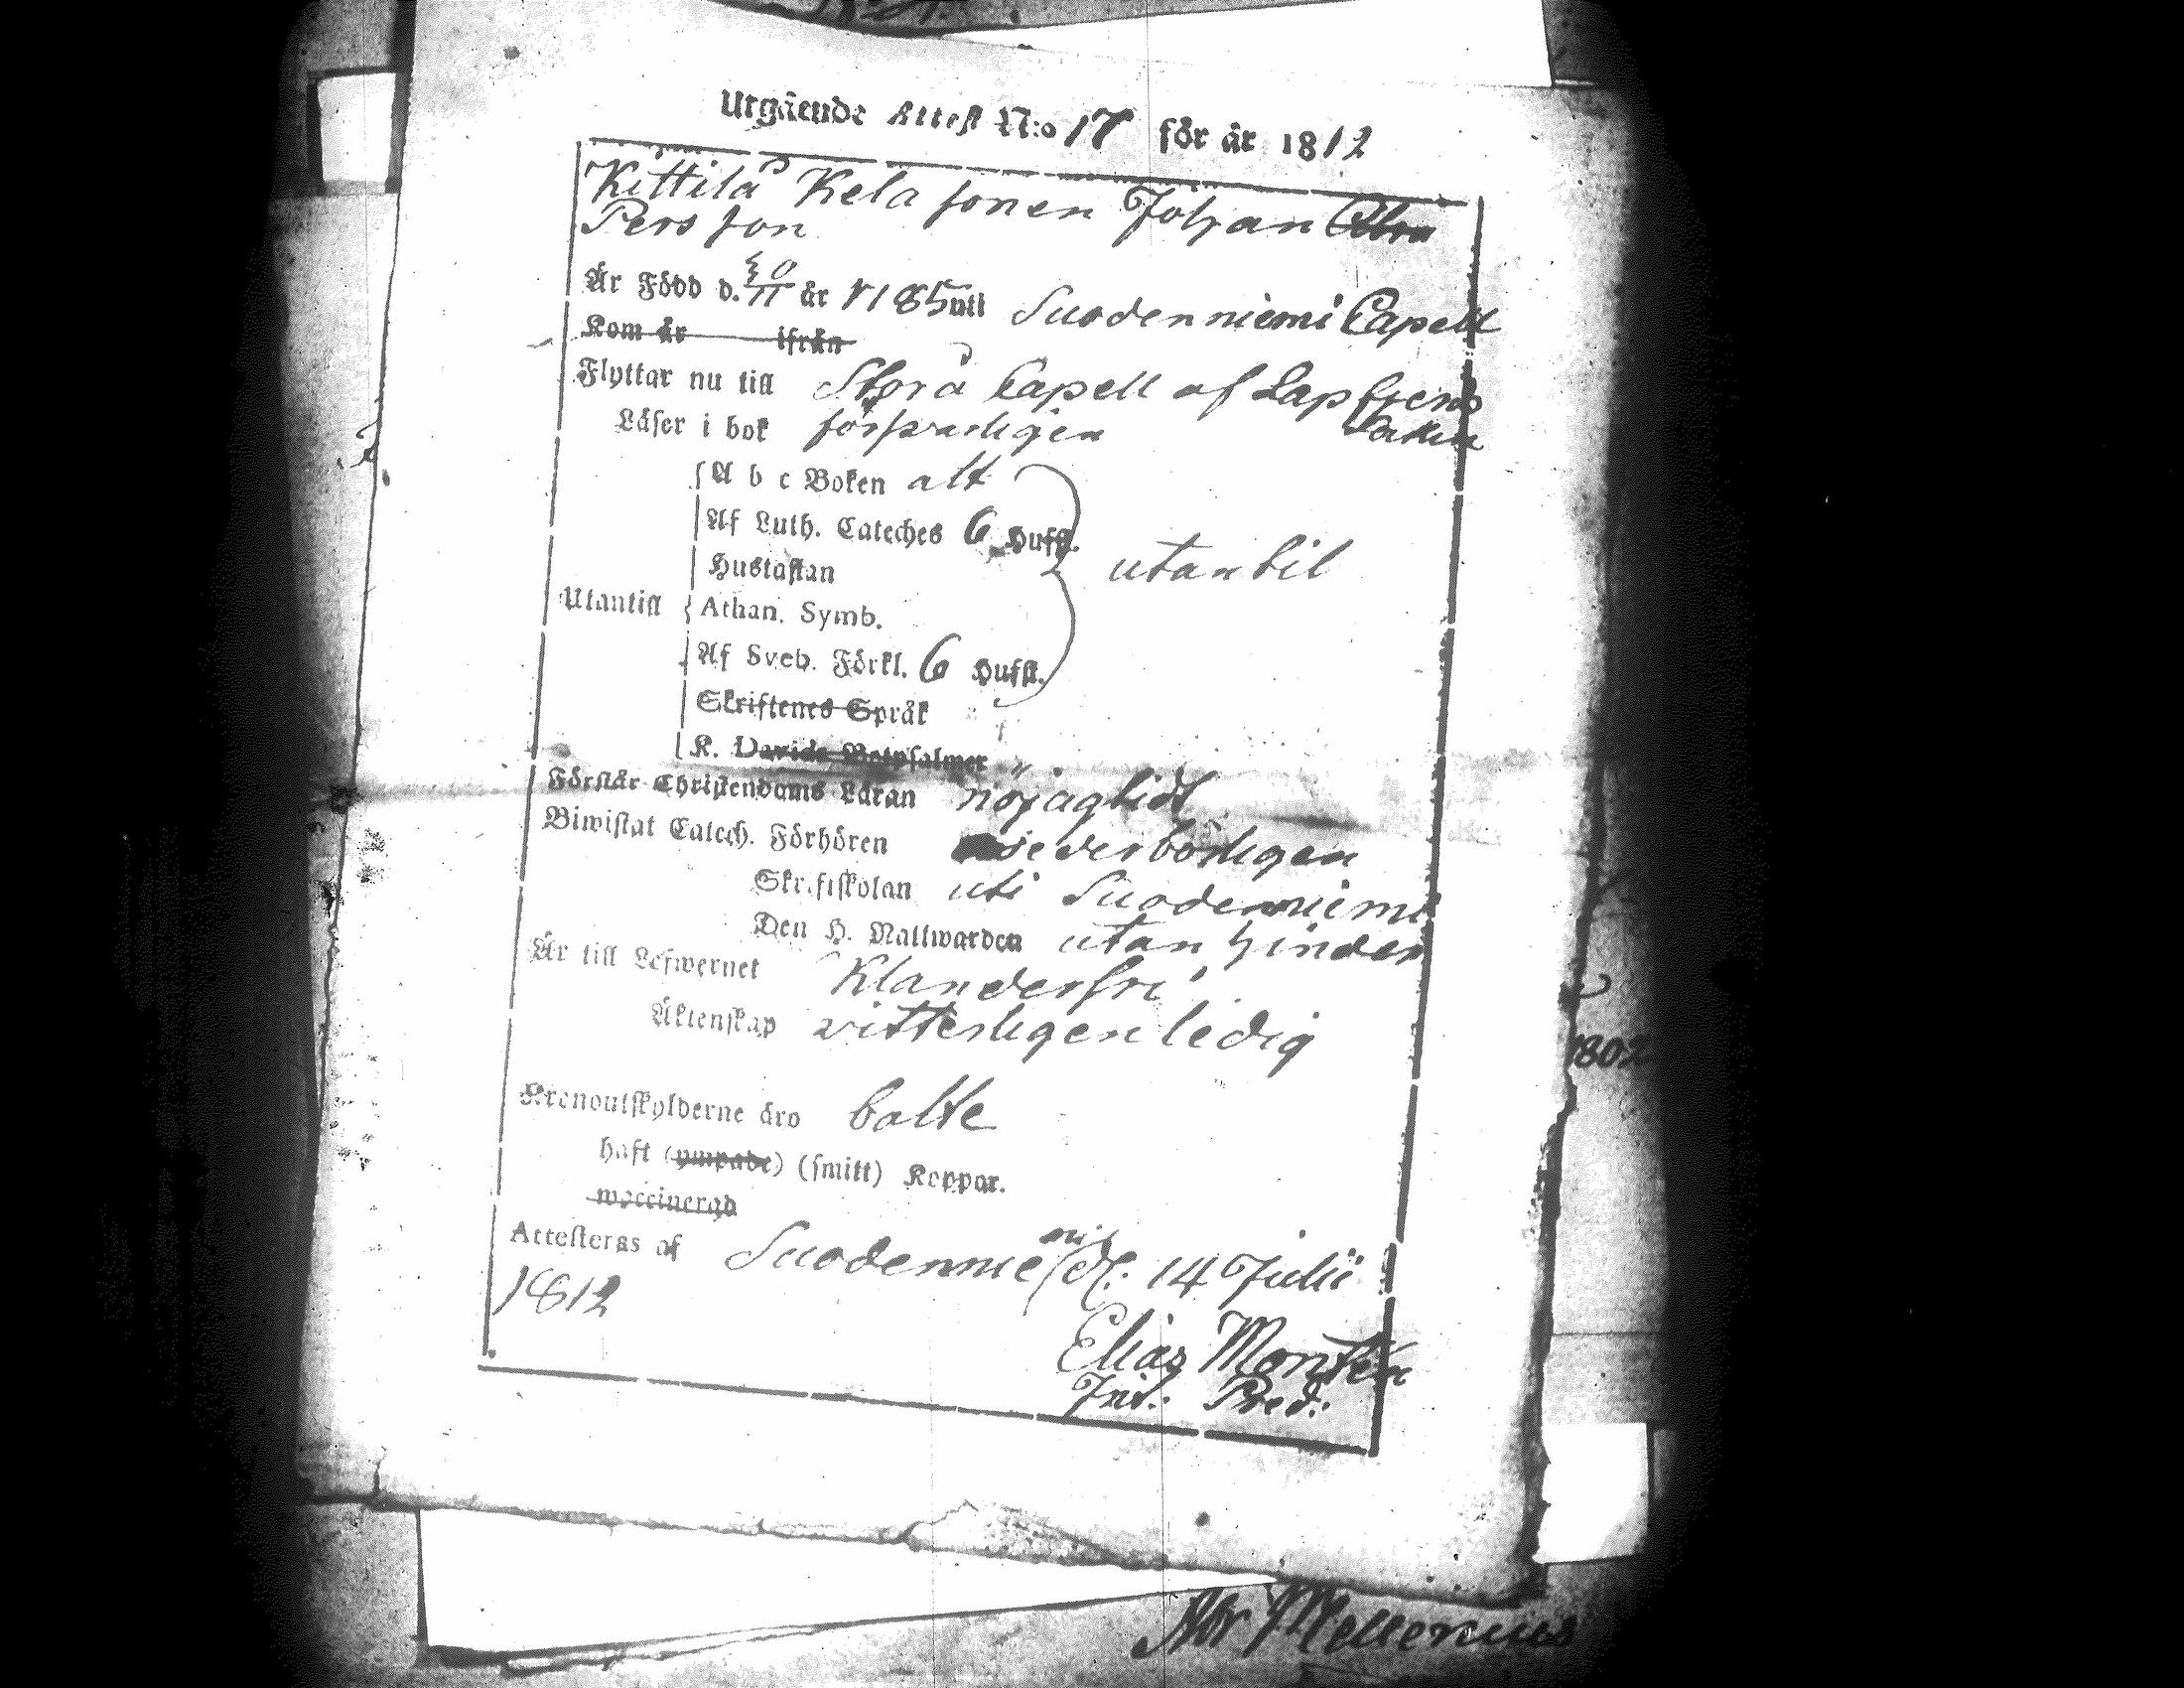 Utgående Attest N:o 17 för år 1812
Kittilä Kela sonen Johan
Pers son
Är Född d. 30/11 år 1785 uti Suodenniemi Capell
Kom år ifrån
Flyttar nu till Storå Capell af Lapfjerds
Läser i bok försvarligen Sokn
A b c Boken alt
Af Luth. Cateches 6 Hufst.
Hustaflan utantil
Utantill Athan. Symb.
Af Sveb. Förkl. 6 Hufst.
Skriftenes Språk
K. Davids Botpsalmer
Förstår Christendoms Läran nöjagtidt
Biwistat Catech. Förhören vederbörligen
Skriftskolan uti Suodenniemi
Den H. Nattwarden utan hinder
Är till Lefwernet Klanderfri
Äktenskap vitterligen ledig
Kronoutskylderne äro balte
haft (ympade) (smitt) Koppor.
waccinerad
Attesteras af Suodenniemi d. 14 Julii
1812
Elias Montén
Pred:
1802
Mellenius